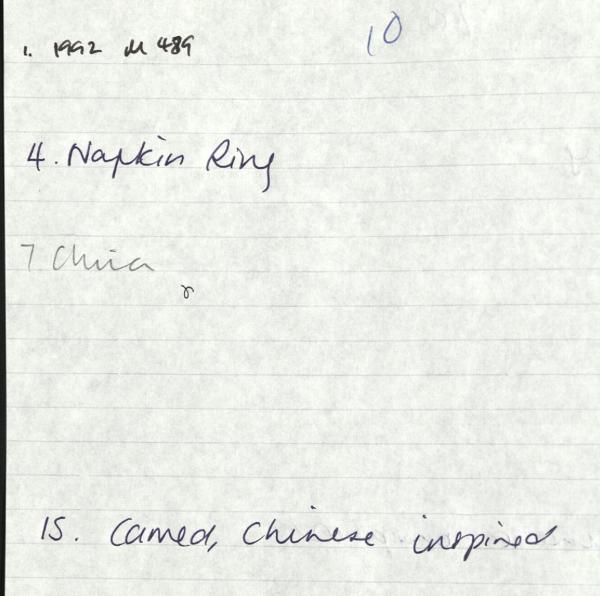 10
1. 1992 M 489
4. Napkin Ring
7 China
15. Carved, Chinese inspired